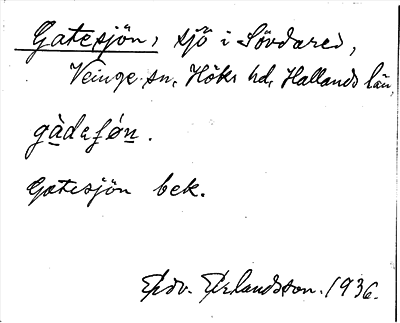 Gatesjön, sjö i Sövdared,
Veinge sn, Höks hd, Hallands län
gàdaʃøn.
Gatesjön bek.
Edv. Erlandsson. 1936.